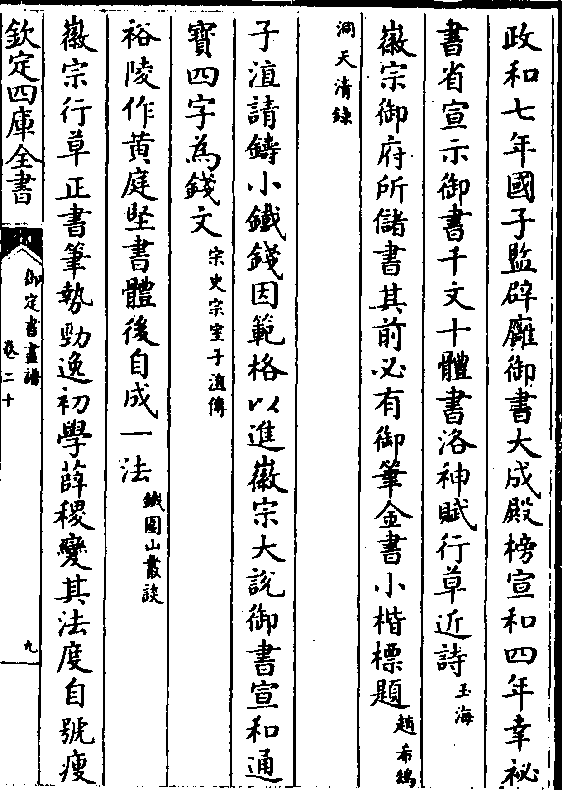 政和七年國子監辟廱御書大成殿榜宣和四年幸祕
書省宣示御書千文十體書洛神賦行草近詩玉海
徽宗御府所儲書其前必有御筆金書小楷標題趙希鵠
洞天清錄
子湻請鑄小鐵錢因範格以進徽宗大說御書宣和通
寶四字為錢文宗史宗室子湻傳
裕陵作黄庭堅書體後自成一法鐵圍山叢談
徽宗行草正書筆勢勁逸初學薛稷變其法度自號瘦
欽定四庫全書
御定書畫譜
卷二十
九